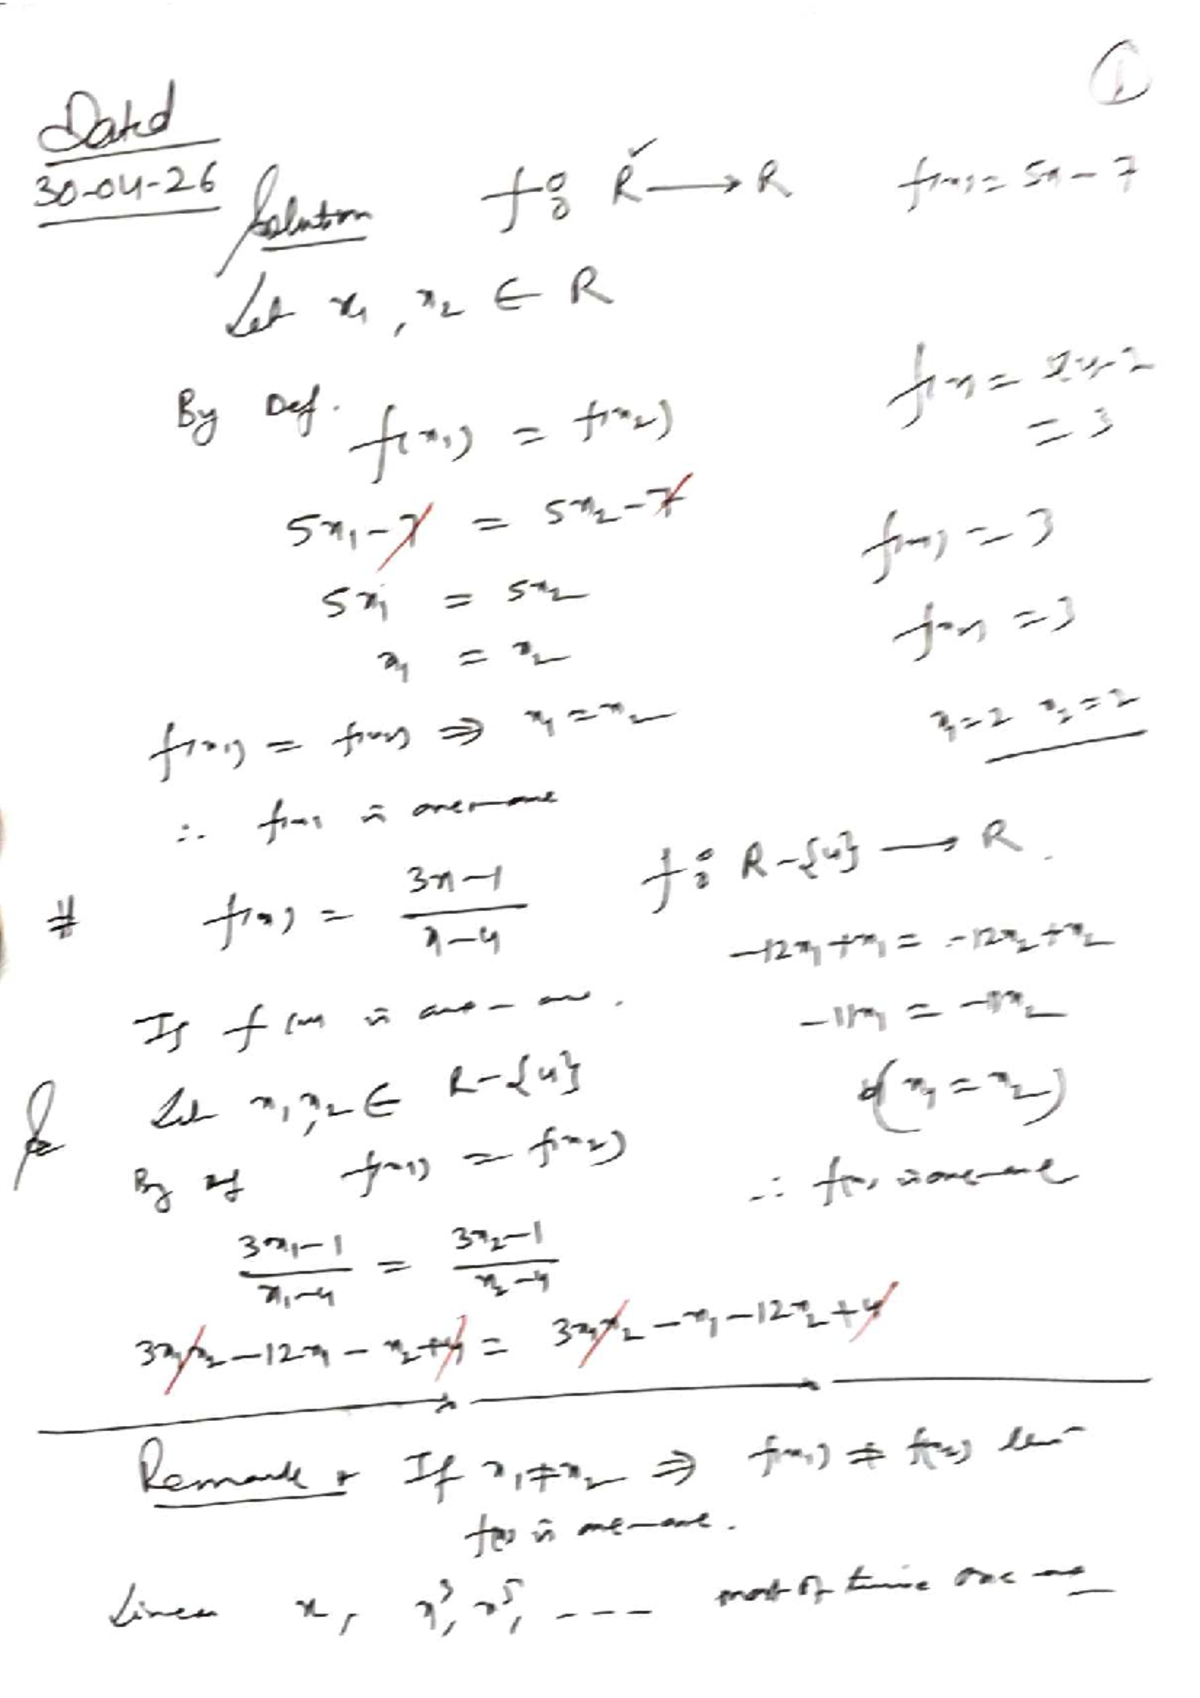 ①
Dated
30-04-26
Solution f: R → R f(x) = 5x - 7
Let x₁, x₂ ∈ R
By Def. f(x₁) = f(x₂)
5x₁ - 7 = 5x₂ - 7
5x₁ = 5x₂
x₁ = x₂
f(x₁) = f(x₂) ⇒ x₁ = x₂
∴ f(x) is one-one
= 3
f(x) = 3
f(x) = 3
x₁ = 2 x₂ = 2
# f(x) = (3x - 1)/(x - 4) f: R - {4} → R.
If f(x) is one-one.
Let x₁, x₂ ∈ R - {4}
By def f(x₁) = f(x₂)
(3x₁ - 1)/(x₁ - 4) = (3x₂ - 1)/(x₂ - 4)
3x₁x₂ - 12x₁ - x₂ + 4 = 3x₁x₂ - x₁ - 12x₂ + 4
-12x₁ + x₁ = -12x₂ + x₂
-11x₁ = -11x₂
(x₁ = x₂)
∴ f(x) is one-one
Remark If x₁ ≠ x₂ ⇒ f(x₁) ≠ f(x₂)
f(x) is one-one.
Linear x, x³, x⁵, --- most of time one-one